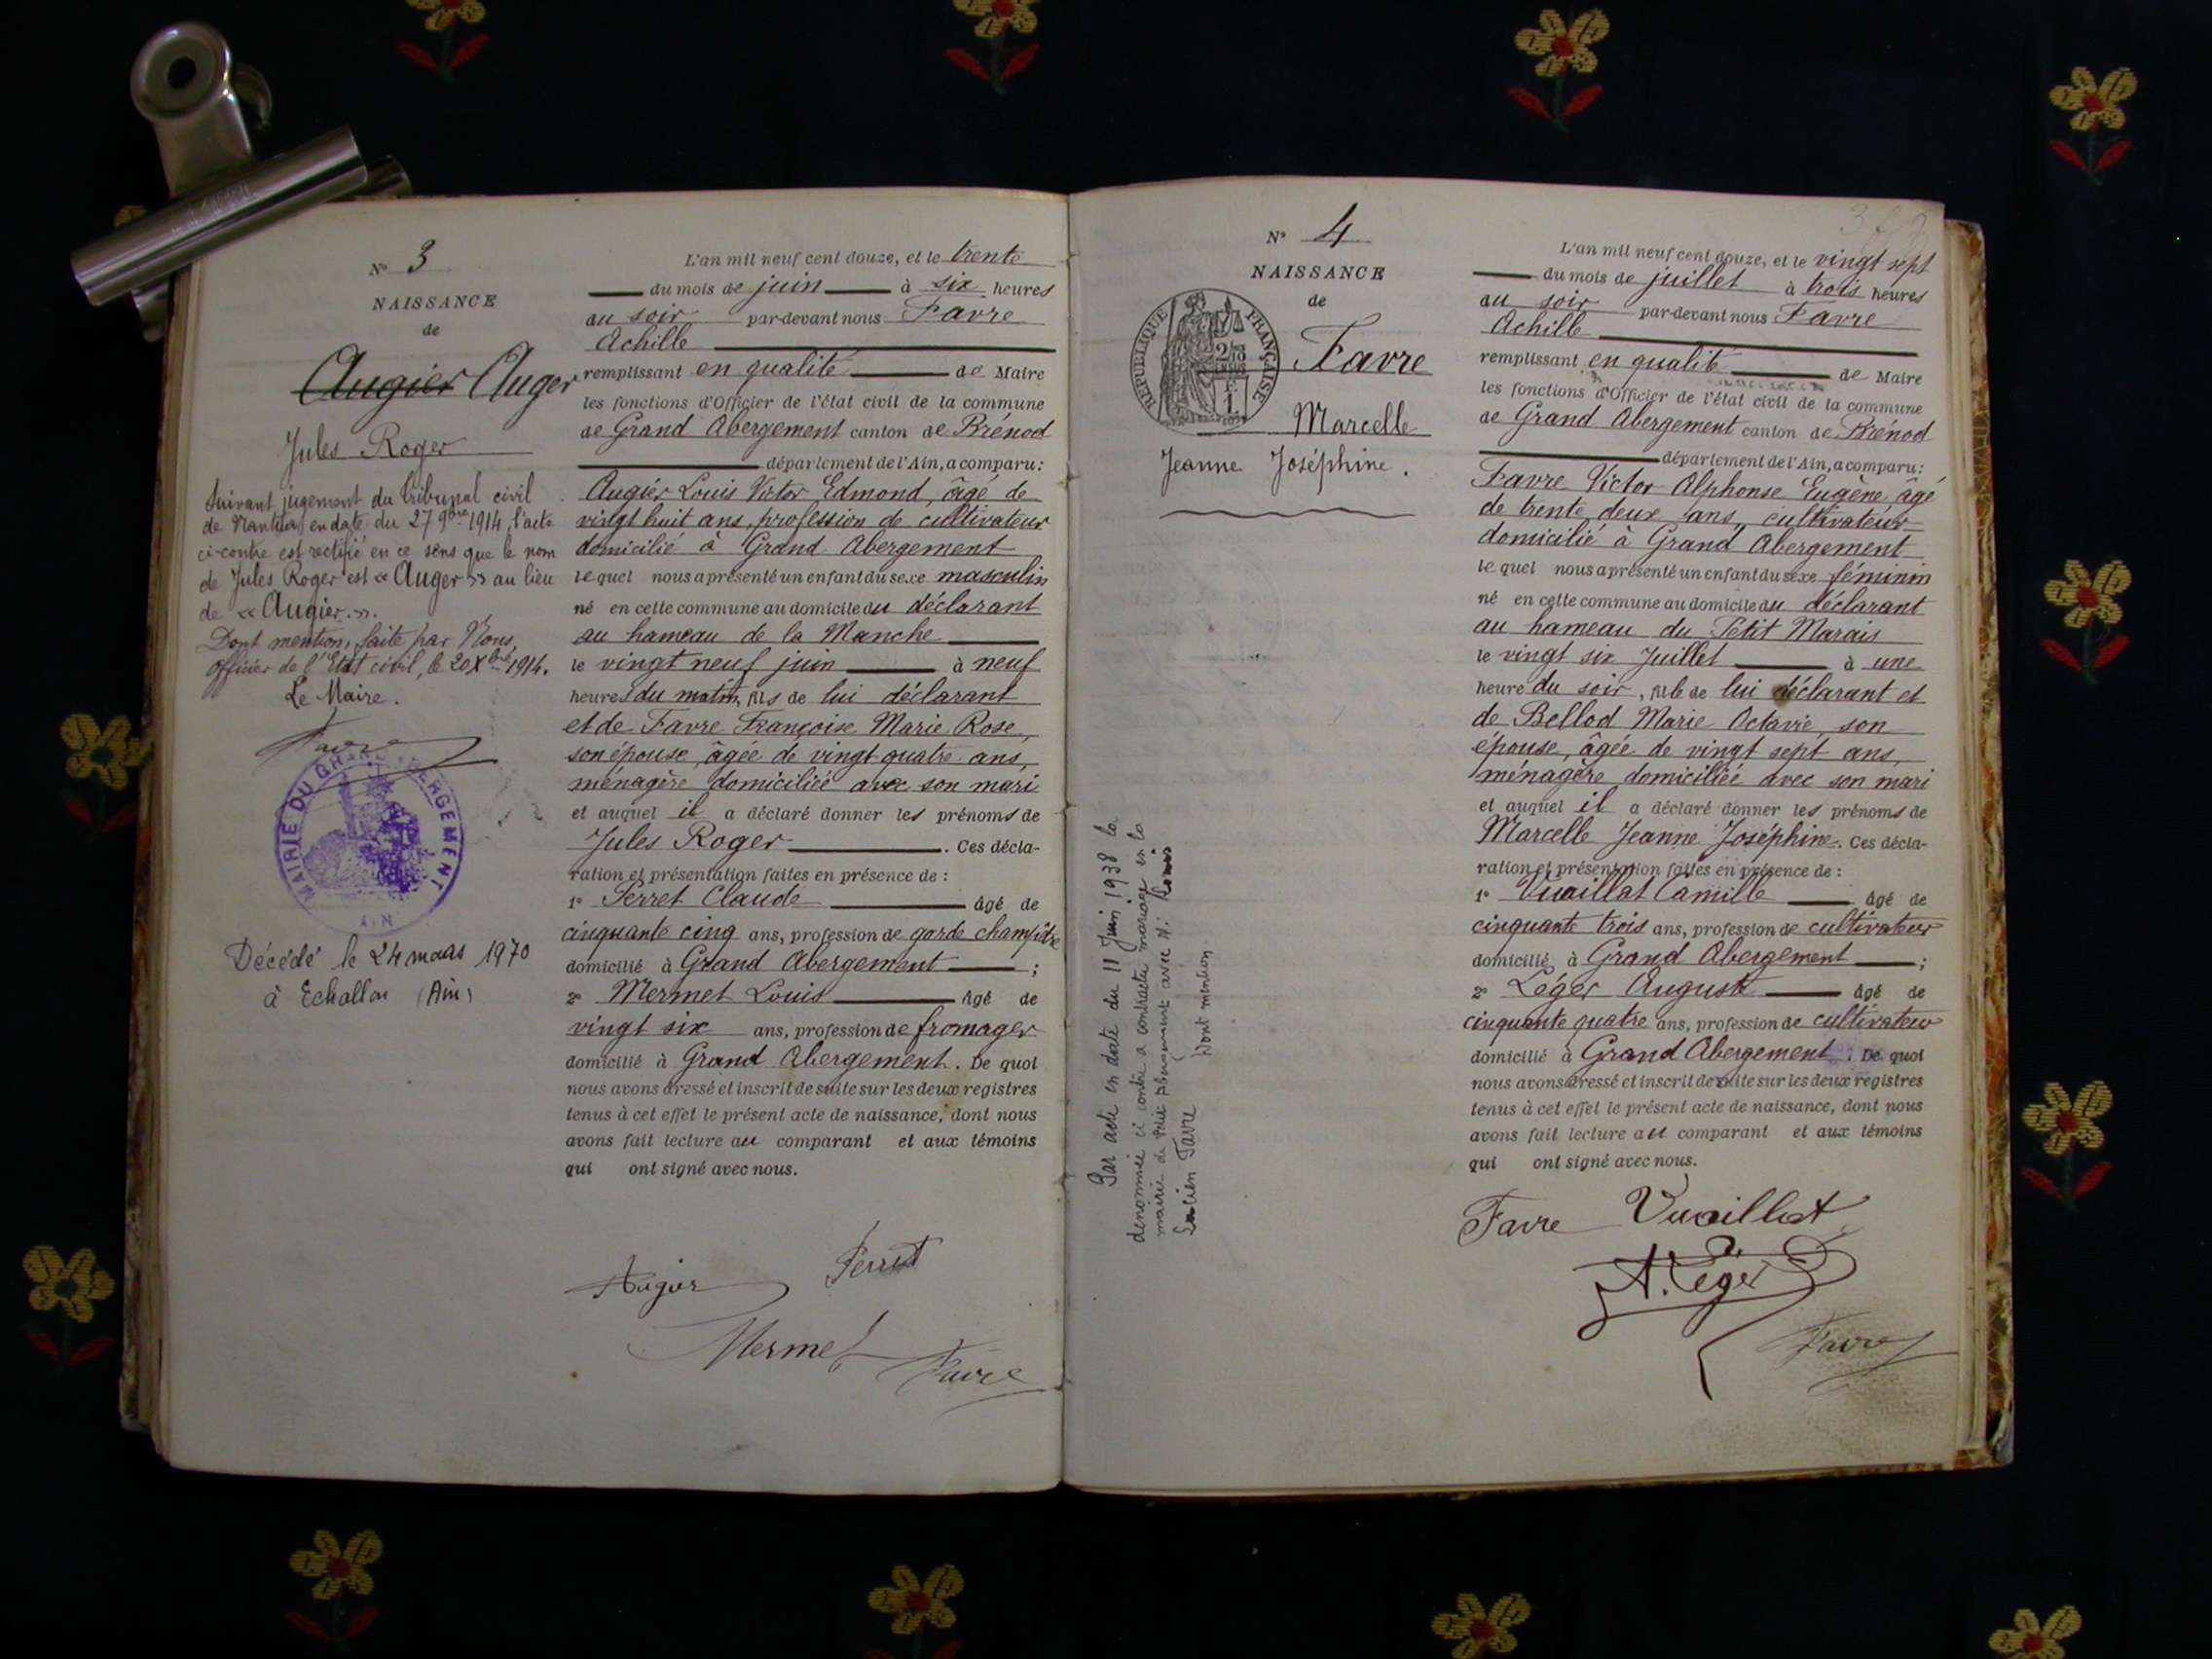 N° 3
NAISSANCE
de
Augier Auger
Jules Roger
Suivant jugement du tribunal civil
de Nantua en date du 27 9bre 1914, l'acte
ci-contre est rectifié en ce sens que le nom
de Jules Roger est « Auger » au lieu
de « Augier. ».
Dont mention, faite par Nous,
officier de l'Etat civil, le 20 Xbre 1914.
Le Maire.
Favre
MAIRIE DU GRAND ABERGEMENT
AIN
Décédé le 24 mars 1970
à Echallon (Ain)
L'an mil neuf cent douze, et le trente
du mois de juin à six heures
du soir par-devant nous Favre
Achille
remplissant en qualité de Maire
les fonctions d'Officier de l'état civil de la commune
de Grand Abergement canton de Brénod
département de l'Ain, a comparu:
Augier Louis Victor Edmond, âgé de
vingt huit ans, profession de cultivateur
domicilié à Grand Abergement
lequel nous a présenté un enfant du sexe masculin
né en cette commune au domicile du déclarant
au hameau de la Manche
le vingt neuf juin à neuf
heures du matin, fils de lui déclarant
et de Favre Françoise Marie Rose,
son épouse, âgée de vingt quatre ans,
ménagère domiciliée avec son mari
et auquel il a déclaré donner les prénoms de
Jules Roger. Ces décla-
ration et présentation faites en présence de :
1° Perret Claude âgé de
cinquante cinq ans, profession de garde champêtre
domicilié à Grand Abergement ;
2° Mermet Louis âgé de
vingt six ans, profession de fromager
domicilié à Grand Abergement. De quoi
nous avons dressé et inscrit de suite sur les deux registres
tenus à cet effet le présent acte de naissance, dont nous
avons fait lecture au comparant et aux témoins
qui ont signé avec nous.
Augier Perret
Mermet Favre
N° 4
NAISSANCE
de
REPUBLIQUE FRANÇAISE
Favre
Marcelle
Jeanne Joséphine.
Par acte en date du 11 Juin 1938 la
dénommée ci contre a contracté mariage en la
mairie de avec M. Louis
Lucien Favre Dont mention
L'an mil neuf cent douze, et le vingt sept
du mois de juillet à trois heures
du soir par-devant nous Favre
Achille
remplissant en qualité de Maire
les fonctions d'Officier de l'état civil de la commune
de Grand Abergement canton de Brénod
département de l'Ain, a comparu:
Favre Victor Alphonse Eugène âgé
de trente deux ans, cultivateur
domicilié à Grand Abergement
lequel nous a présenté un enfant du sexe féminin
né en cette commune au domicile du déclarant
au hameau du Petit Marais
le vingt six Juillet à une
heure du soir, fille de lui déclarant et
de Bellod Marie Octavie, son
épouse, âgée de vingt sept ans,
ménagère domiciliée avec son mari
et auquel il a déclaré donner les prénoms de
Marcelle Jeanne Joséphine. Ces décla-
ration et présentation faites en présence de :
1° Vuaillat Camille âgé de
cinquante trois ans, profession de cultivateur
domicilié à Grand Abergement ;
2° Léger Auguste âgé de
cinquante quatre ans, profession de cultivateur
domicilié à Grand Abergement. De quoi
nous avons dressé et inscrit de suite sur les deux registres
tenus à cet effet le présent acte de naissance, dont nous
avons fait lecture au comparant et aux témoins
qui ont signé avec nous.
Favre Vuaillat
A. Léger
Favre